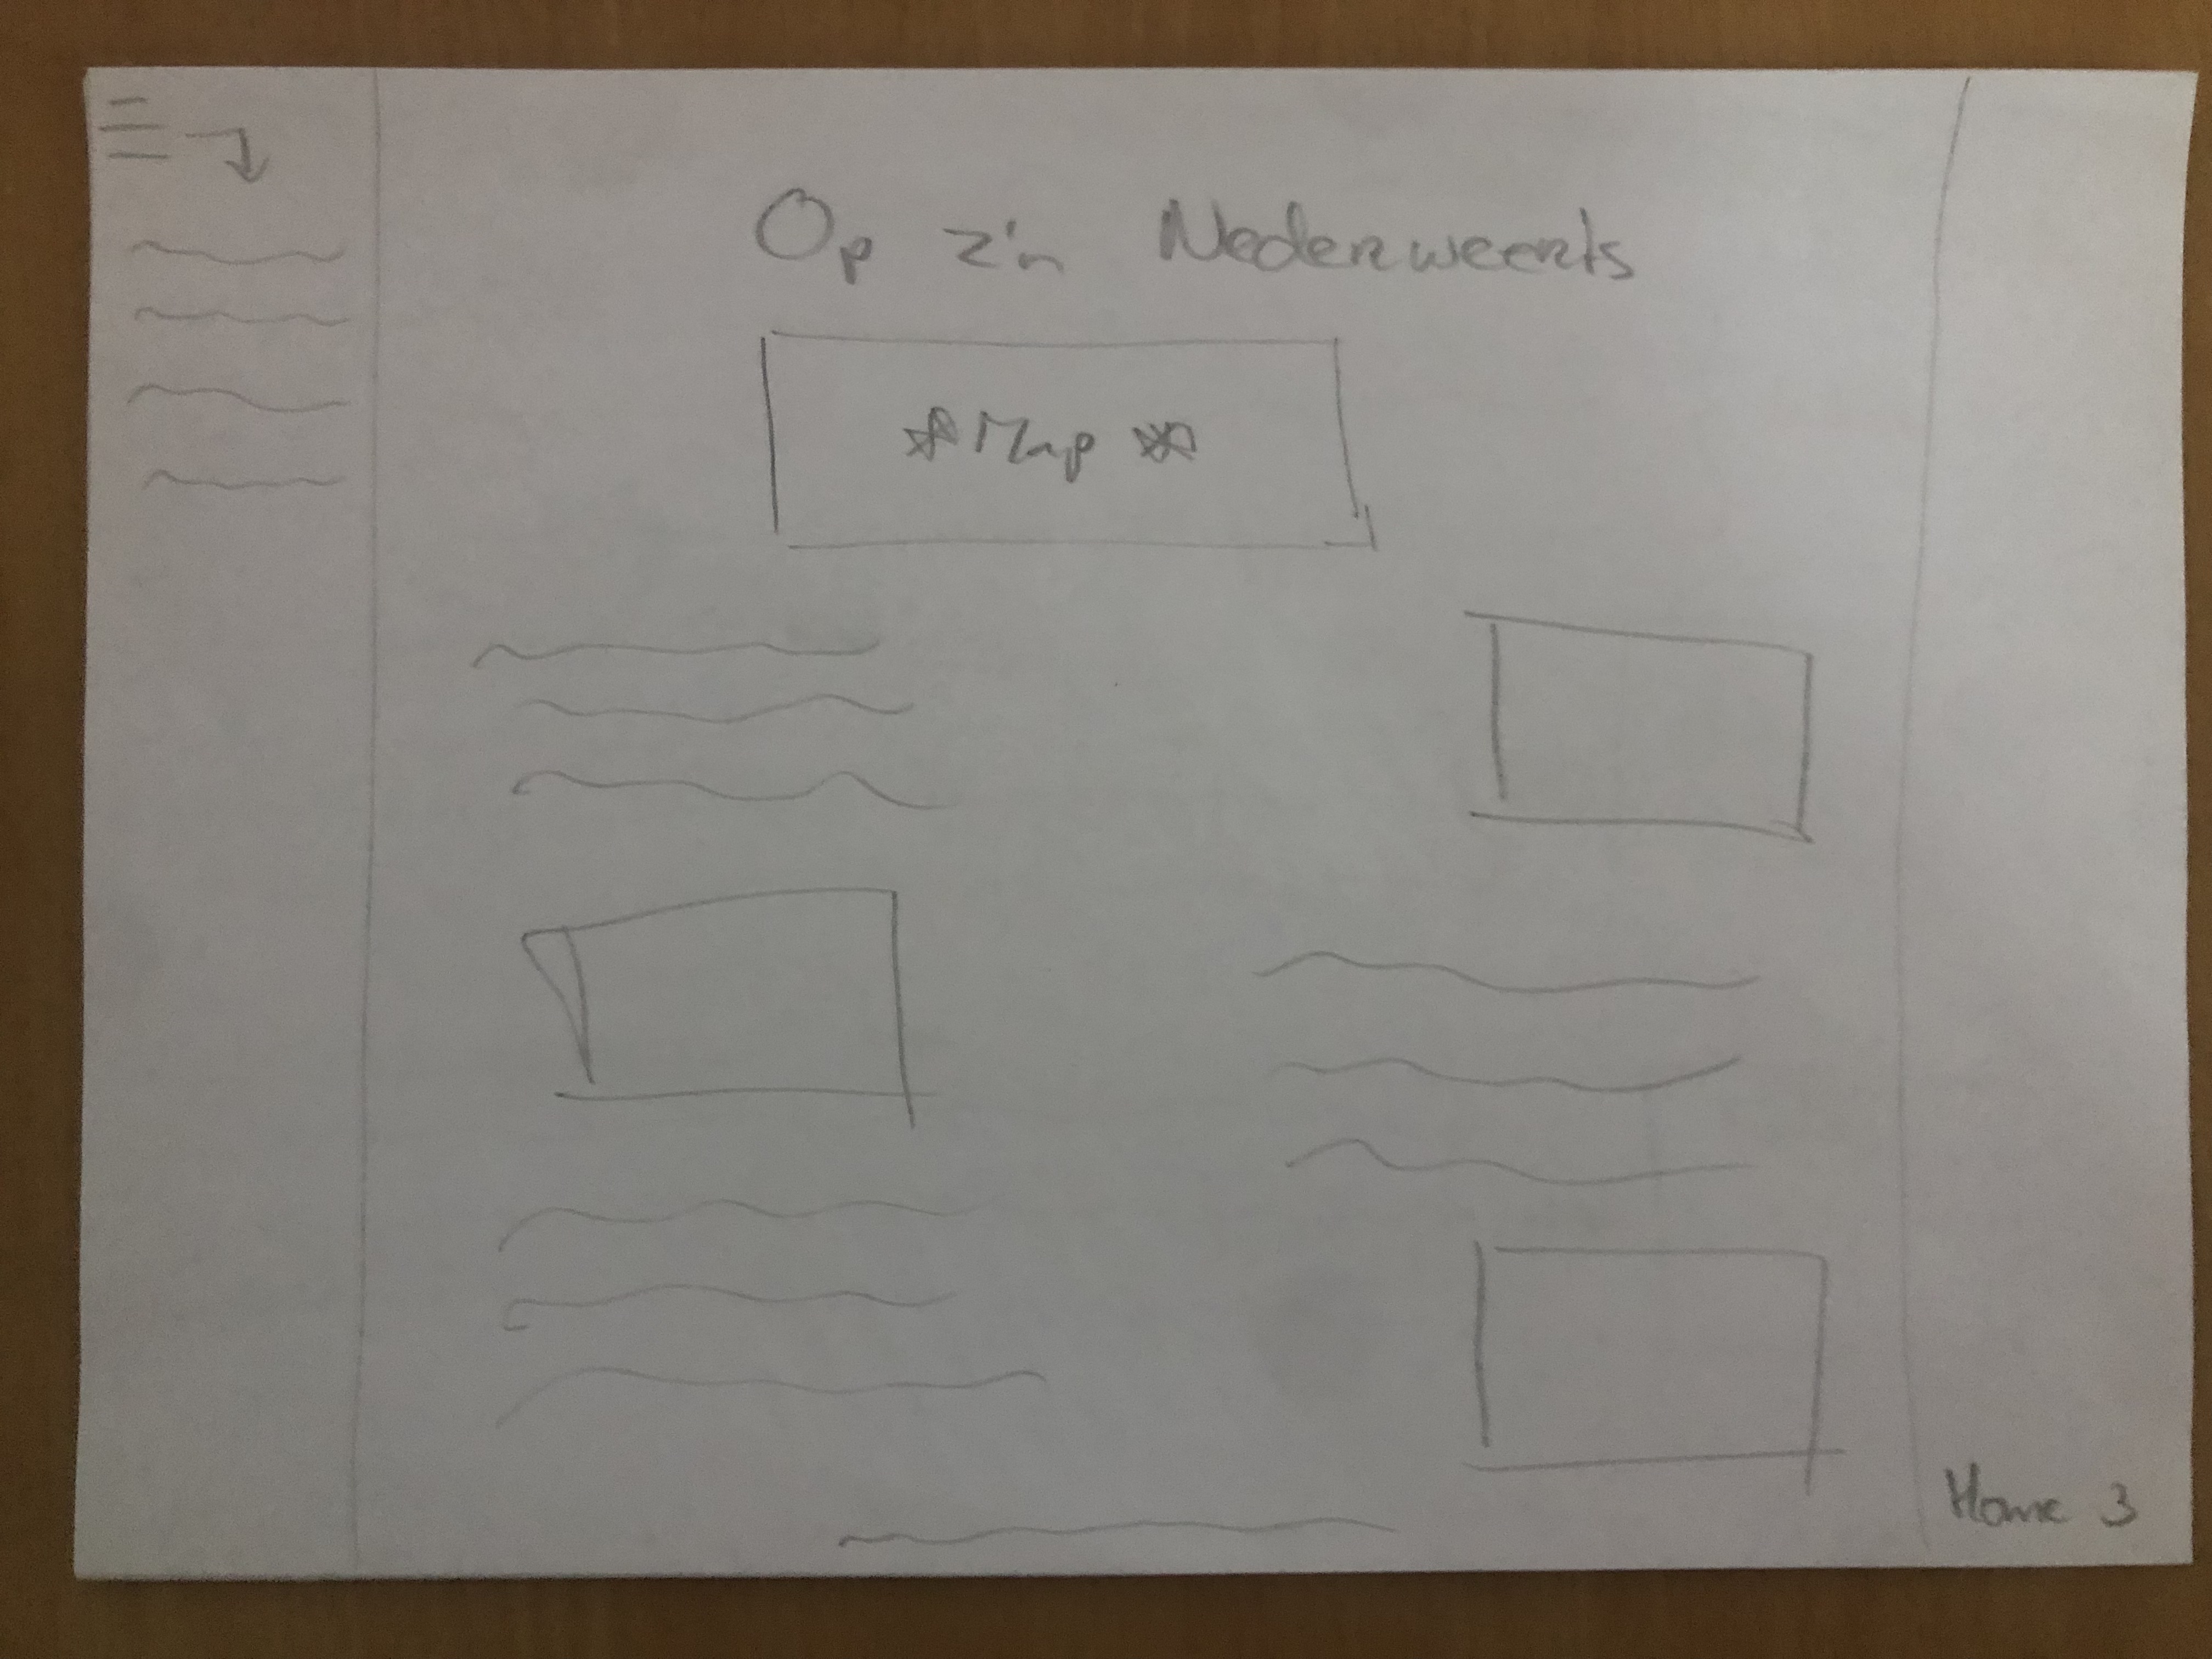 Op z'n Nederweerts
*Map*
Home 3